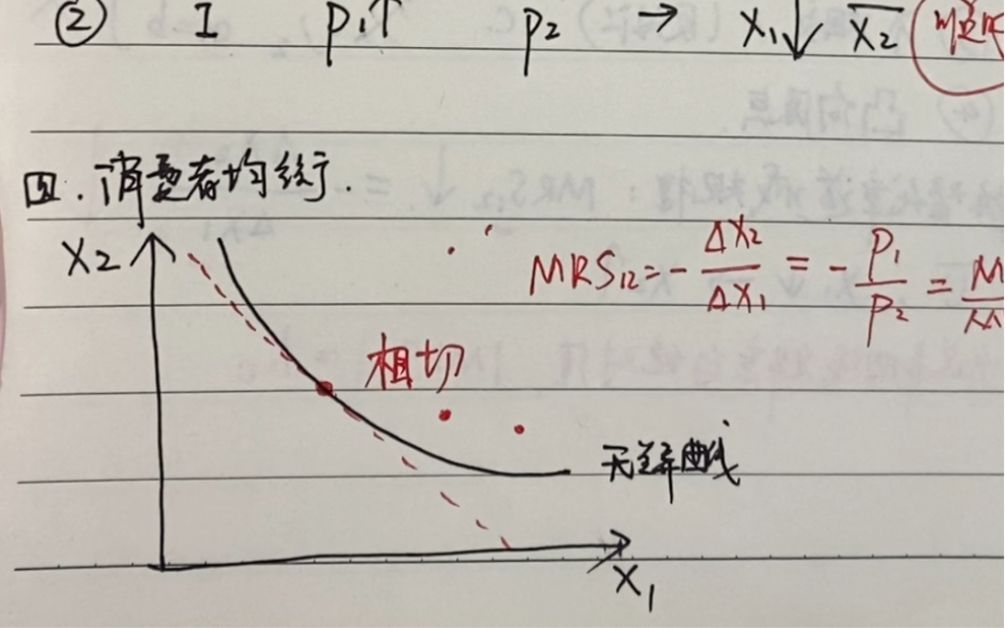 ② I P₁↑ P₂ → X₁↓ X̅₂
四.消费者均衡.
X₂
MRS₁₂=-ΔX₂/ΔX₁=-P₁/P₂=M
相切
无差异曲线
X₁